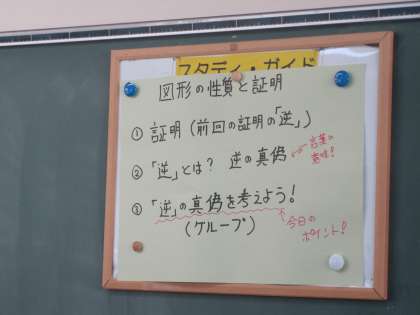 スタディ・ガイド
図形の性質と証明
① 証明(前回の証明の「逆」)
② 「逆」とは? 逆の真偽
言葉の意味!
③ 「逆」の真偽を考えよう!
(グループ)
今日のポイント!